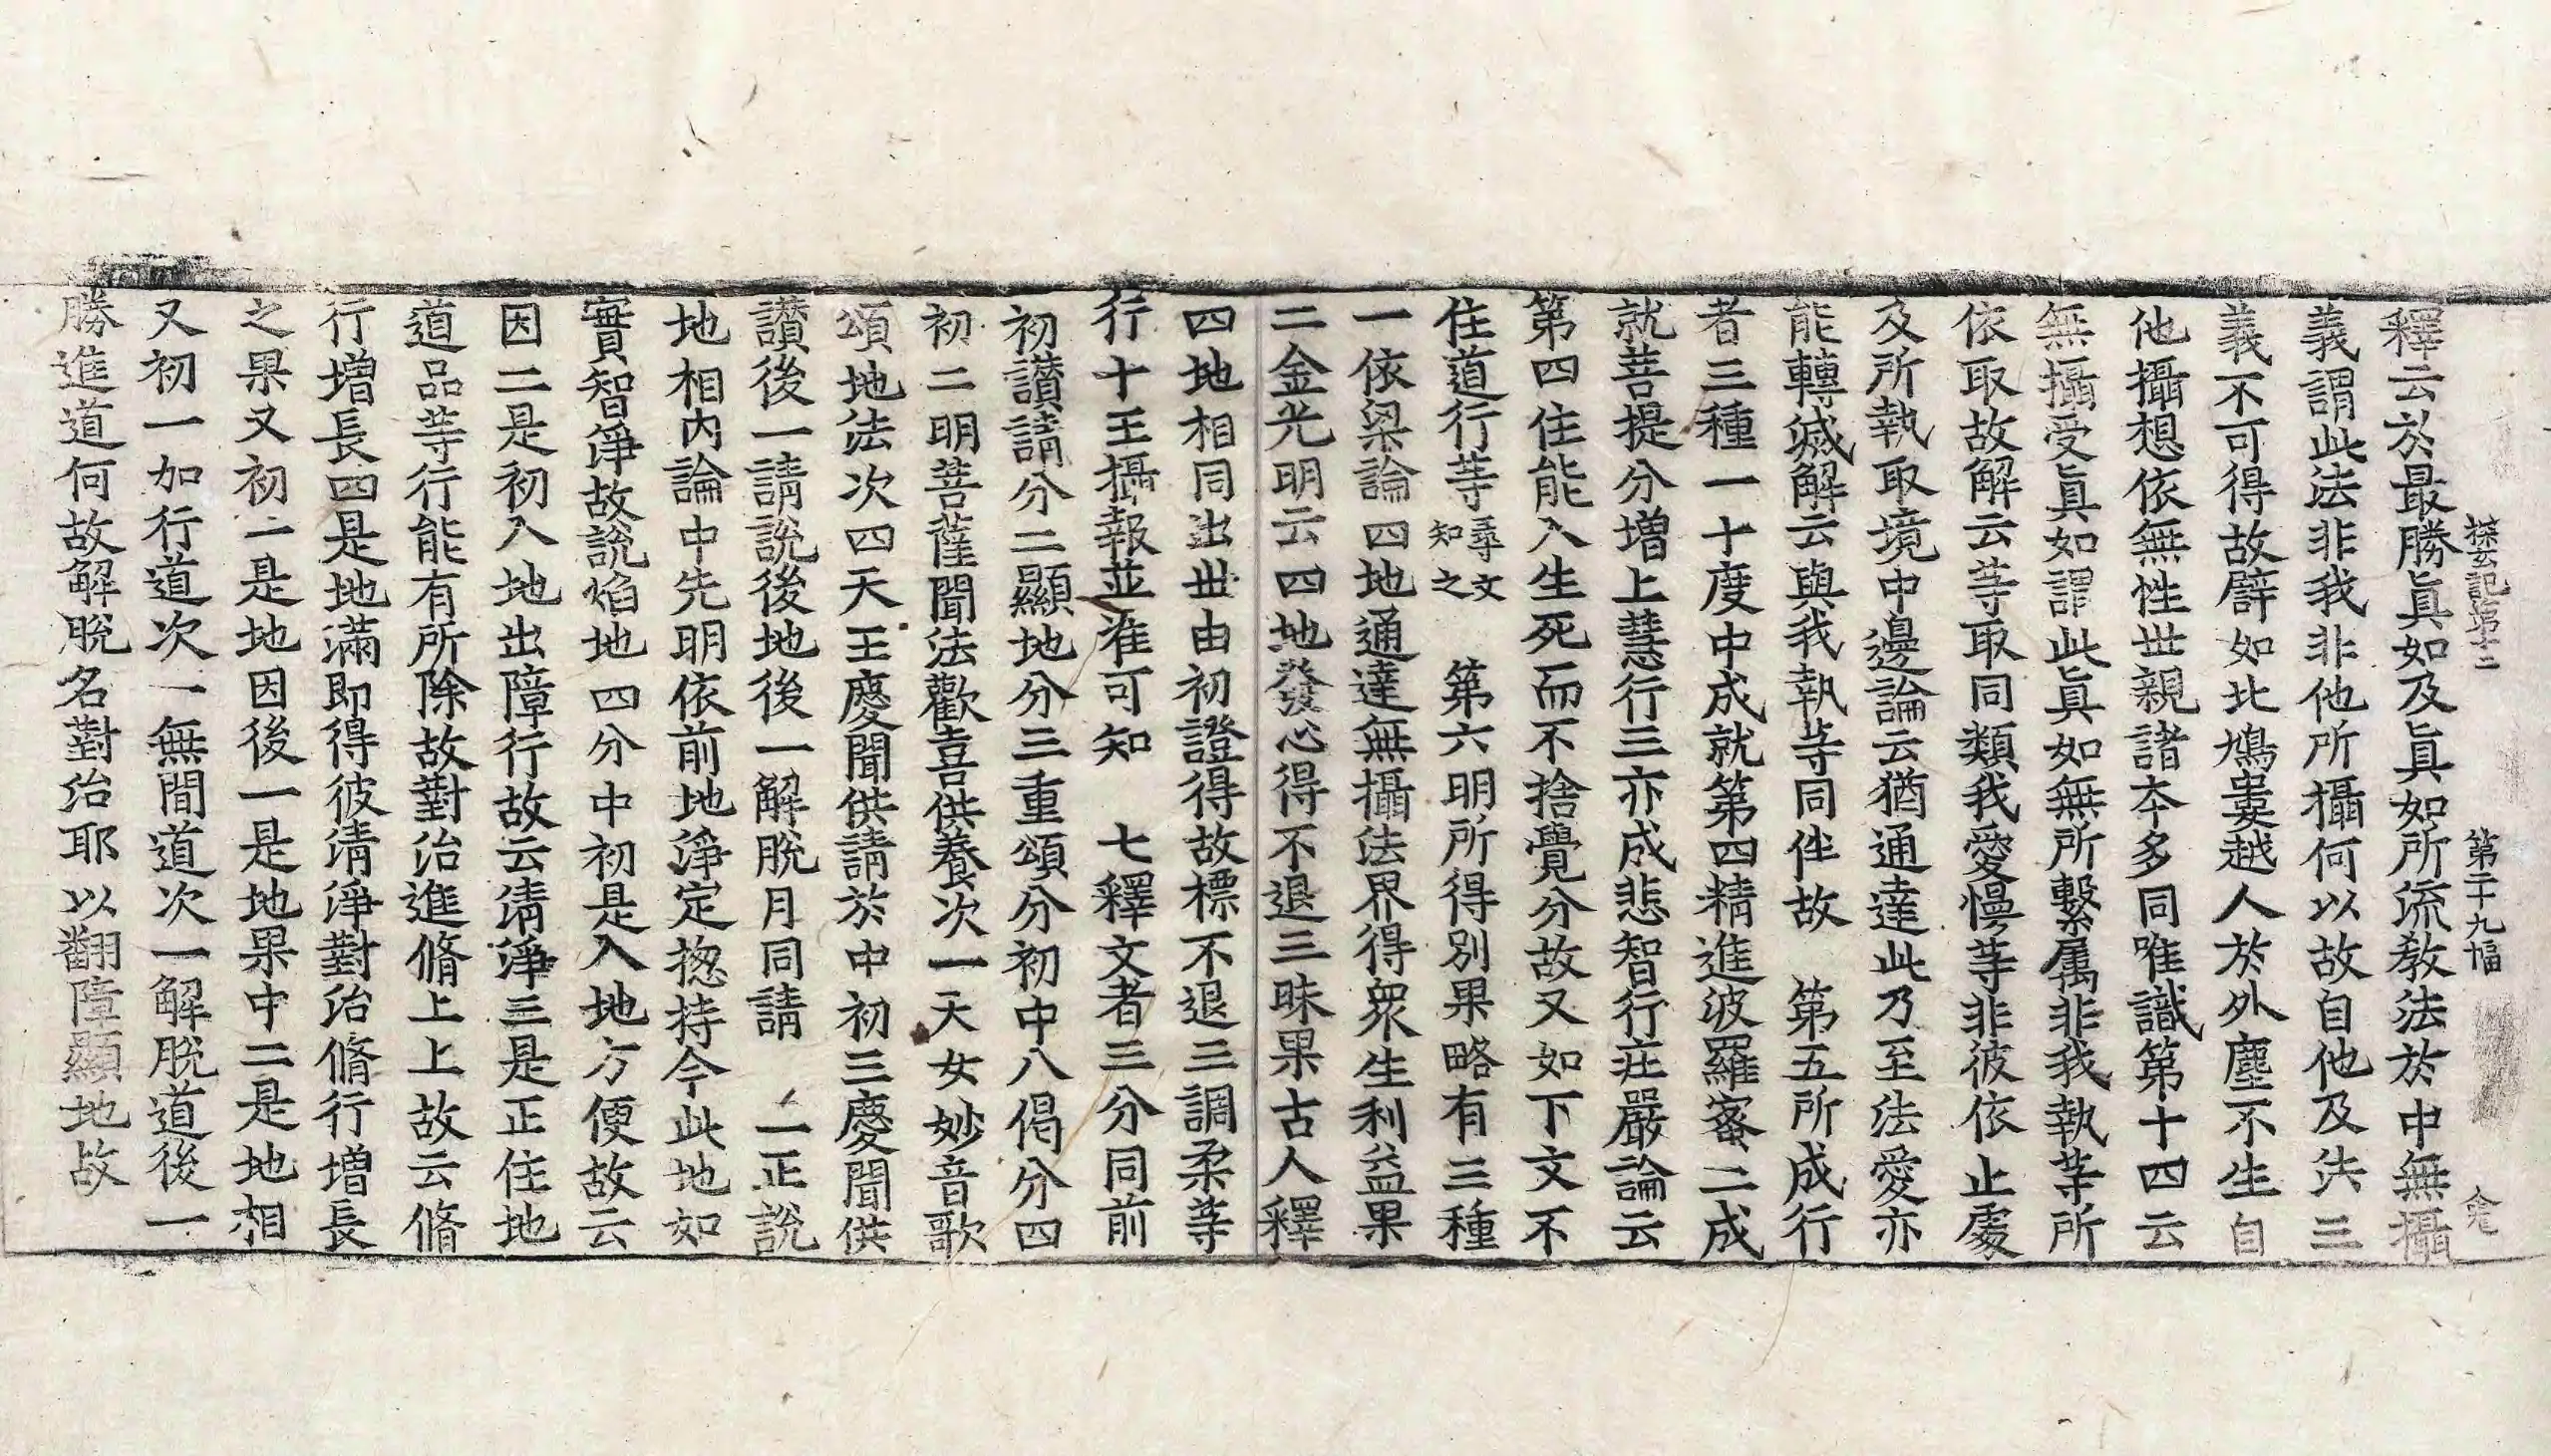 探玄記第十二 第二十九幅 兪
釋云於最勝眞如及眞如所流教法於中無攝
義謂此法非我非他所攝何以故自他及法三
義不可得故譬如北鳩婁越人於外塵不生自
他攝想依無性世親諸本多同唯識第十四云
無攝受眞如謂此眞如無所繫属非我執等所
依取故解云等取同類我愛慢等非彼依止處
及所執取境中邊論云猶通達此乃至法愛亦
能轉滅解云與我執等同伴故 第五所成行
者三種一十度中成就第四精進波羅蜜二成
就菩提分增上慧行三亦成悲智行莊嚴論云
第四住能入生死而不捨覺分故又如下文不
住道行等尋文知之 第六明所得別果略有三種
一依梁論四地通達無攝法界得衆生利益果
二金光明云四地發心得不退三昧果古人釋
四地相同出世由初證得故標不退三調柔等
行十王攝報並准可知 七釋文者三分同前
初讃請分二顯地分三重頌分初中八偈分四
初二明菩薩聞法歡喜供養次一天女妙音歌
頌地法次四天王慶聞供請於中初三慶聞供
讃後一請說後地後一解脫月同請 二正說
地相內論中先明依前地淨定揔持今此地如
實智淨故說焰地四分中初是入地方便故云
因二是初入地出障行故云清淨三是正住地
道品等行能有所除故對治進脩上上故云脩
行增長四是地滿即得彼清淨對治脩行增長
之果又初二是地因後一是地果中二是地相
又初一加行道次一無間道次一解脫道後一
勝進道何故解脫名對治耶以翻障顯地故